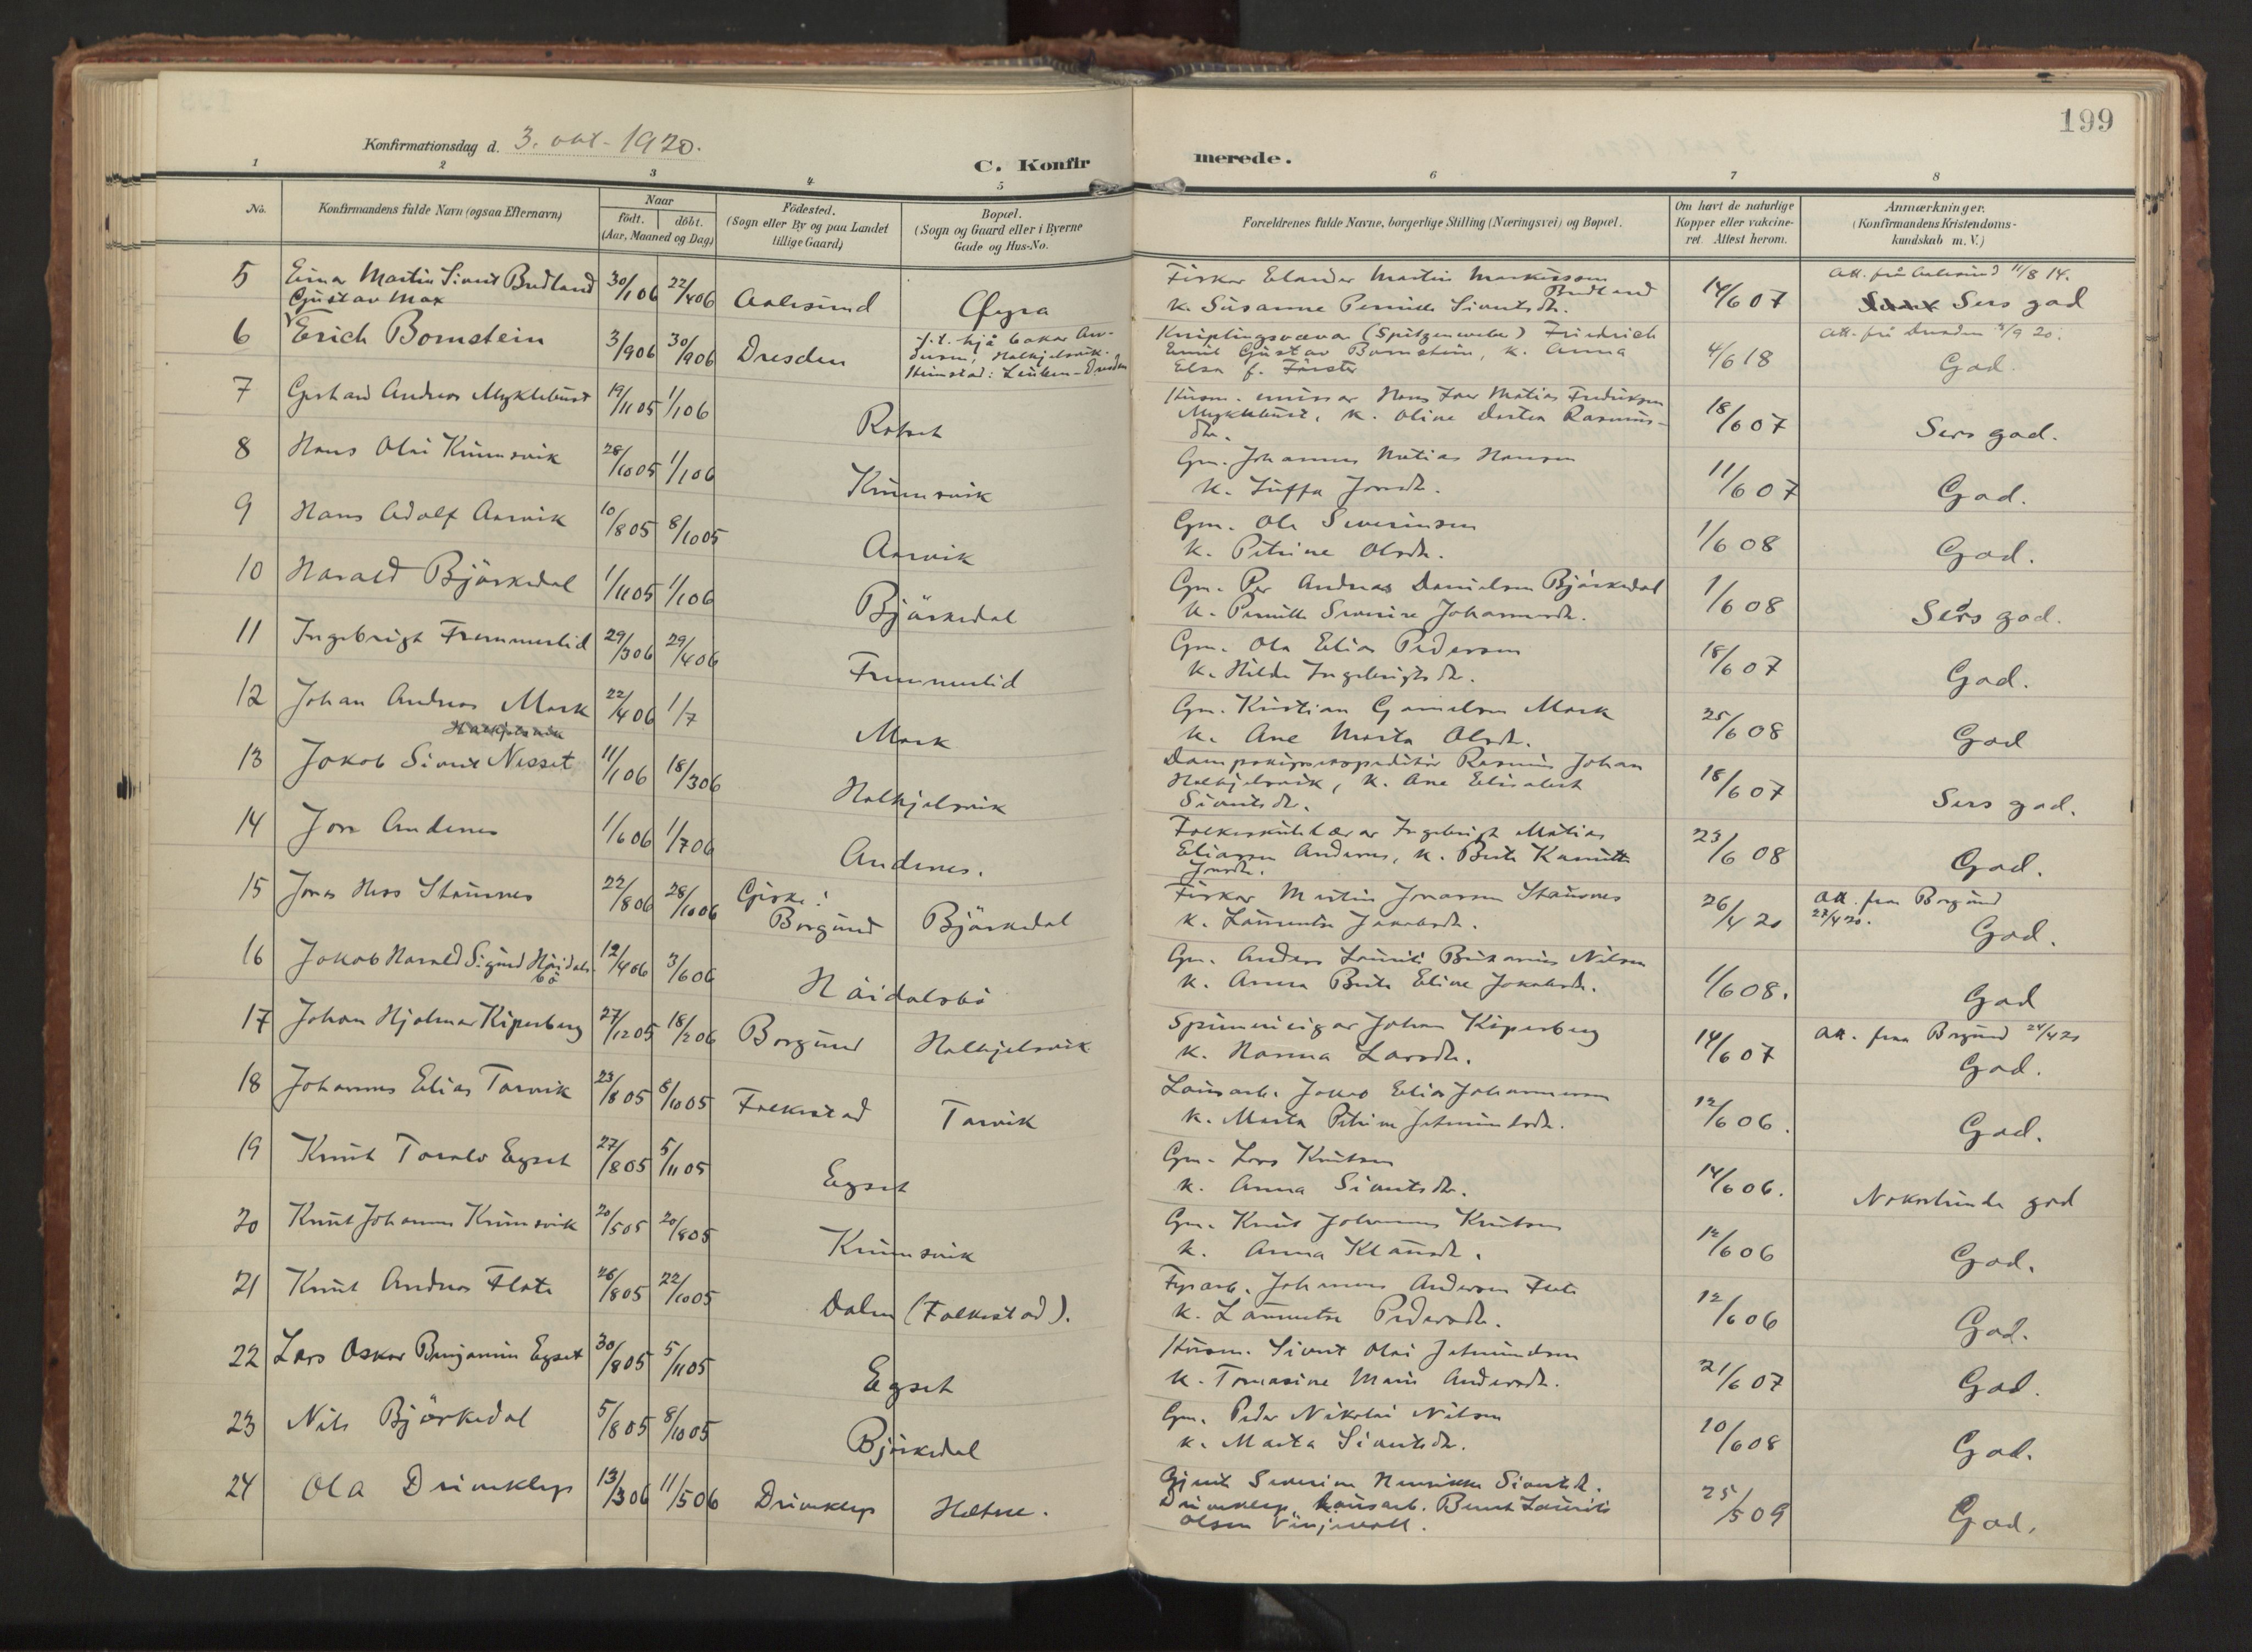 199
Konfirmationsdag d. 3. okt. 1920.
C. Konfirmerede.
1 2 3 4 5 6 7 8
No. Konfirmandens fulde Navn (ogsaa Efternavn) Naar födt. döbt. (Aar, Maaned og Dag) Födested. (Sogn eller By og paa Landet tillige Gaard) Bopæl. (Sogn og Gaard eller i Byerne Gade og Hus-No. Forældrenes fulde Navne, borgerlige Stilling (Næringsvei) og Bopæl. Om havt de naturlige Kopper eller vakcineret. Attest herom. Anmærkninger. (Konfirmandens Kristendomskundskab m. V.)
5 Einar Martin Sivert Budland 30/1 06 22/4 06 Aalesund Øyra
Fiskar Elander Martin Markussen Budland
k. Susanne Pernille Sivertsdtr. 14/6 07
Att. frå Aalesund 11/8 14.
Sers god
6 Gustav Max
Erich Bornstein 3/9 06 30/9 06 Dresden
f.t. hjå bakar An-
dersen, Halkjelsvik.
Heimstad: Leuben-Dresden
Kniplingsvævar (Spitzenweber) Friedrich
Emil Gustav Bornstein, k. Anna
Elsa f. Förster 4/6 18
Att. frå Dresden 3/9 20.
God.
7 Gerhard Andreas Myklebust 19/11 05 1/1 06 Rotset
Husm. Hans Ivar Matias Fredriksen
Myklebust, k. Oline Dortea Rasmus-
dtr. 18/6 07 Sers god.
8 Hans Olai Krumsvik 28/10 05 1/1 06 Krumsvik
Gm. Johannes Matias Hansen
k. Jonsdtr. 11/6 07 God.
9 Hans Adolf Aarvik 10/8 05 8/10 05 Aarvik
Gm. Ole Severinsen
k. Petrine Olsdtr. 1/6 08 God.
10 Harald Björkedal 1/11 05 1/1 06 Björkedal
Gm. Per Andreas Danielsen Björkedal
k. Pernille Severine Johannesdtr. 1/6 08 Sers god.
11 Ingebrigt Fremmerlid 29/3 06 29/4 06 Fremmerlid
Gm. Ola Elias Pedersen
k. Hilda Ingebrigtsdtr. 18/6 07 God.
12 Johan Andreas Mork 22/4 06 1/7 Mork
Gm. Kristian Gamelsen Mork
k. Ane Marta Olsdtr. 25/6 08 God
13 Halkjelsvik
Jakob Sivert Nesset 11/1 06 18/3 06 Halkjelsvik
Dampskipsexpeditör Rasmus Johan
Halkjelsvik, k. Ane Elisabeth
Sivertsdtr. 18/6 07 Sers god.
14 Jon Andenes 1/6 06 1/7 06 Andenes.
Folkeskulelærar Ingebrigt Matias
Eliassen Andenes, k. Berte Kamille
Jonsdtr. 23/6 08 God.
15 Jonas Hess Staurnes 22/8 06 28/10 06 Giske i
Borgund Björkedal
Fiskar Martin Jonassen Staurnes
k. Laurentse Jakobsdtr. 26/4 20
Att. fraa Borgund
27/4 20. God.
16 Jakob Harald Sigurd Höidals-
bö 12/4 06 3/6 06 Höidalsbö
Gm. Anders Laurits Nilsen
k. Anna Berte Eline Jakobsdtr. 1/6 08. God
17 Johan Hjalmar Kiperberg 27/12 05 18/2 06 Borgund Halkjelsvik
Spinnerieigar Johan Kiperberg
k. Hanna Larsdtr. 14/6 07
Att. fraa Borgund 24/4 20
God.
18 Johannes Elias Tarvik 23/8 05 8/10 05 Folkestad Tarvik
Lausarb. Jakob Elias Johannessen
k. Marta Petrine Jetmundsdtr. 12/6 06. God.
19 Knut Toralv Egset 27/8 05 5/11 05 Egset
Gm. Lars Knutsen
k. Anna Sivertsdtr. 14/6 06. Nokorlunde god
20 Knut Johannes Krumsvik 20/5 05 20/8 05 Krumsvik
Gm. Knut Johannes Knutsen
k. Anna Klausdtr. 12/6 06 God.
21 Knut Andreas Flote 26/8 05 22/10 05 Dalen (Folkestad).
Johannes Andersen Flote
k. Laurentse Pedersdtr. 12/6 06 God.
22 Lars Oskar Benjamin Egset 30/8 05 5/11 05 Egset
Husm. Sivert Olai Jetmundsen
k. Tomasine Marie Andersdtr. 21/6 07 God.
23 Nils Björkedal 5/8 05 8/10 05 Björkedal
Gm. Peder Nikolai Nilsen
k. Marta Sivertsdtr. 10/6 08 God.
24 Ola Driveklep 13/3 06 11/5 06 Driveklep Hetne.
Gjente Severine Henrikke Sivertsdtr.
Driveklep, lausarb. Bernt Laurits
Olsen 25/5 09 God.